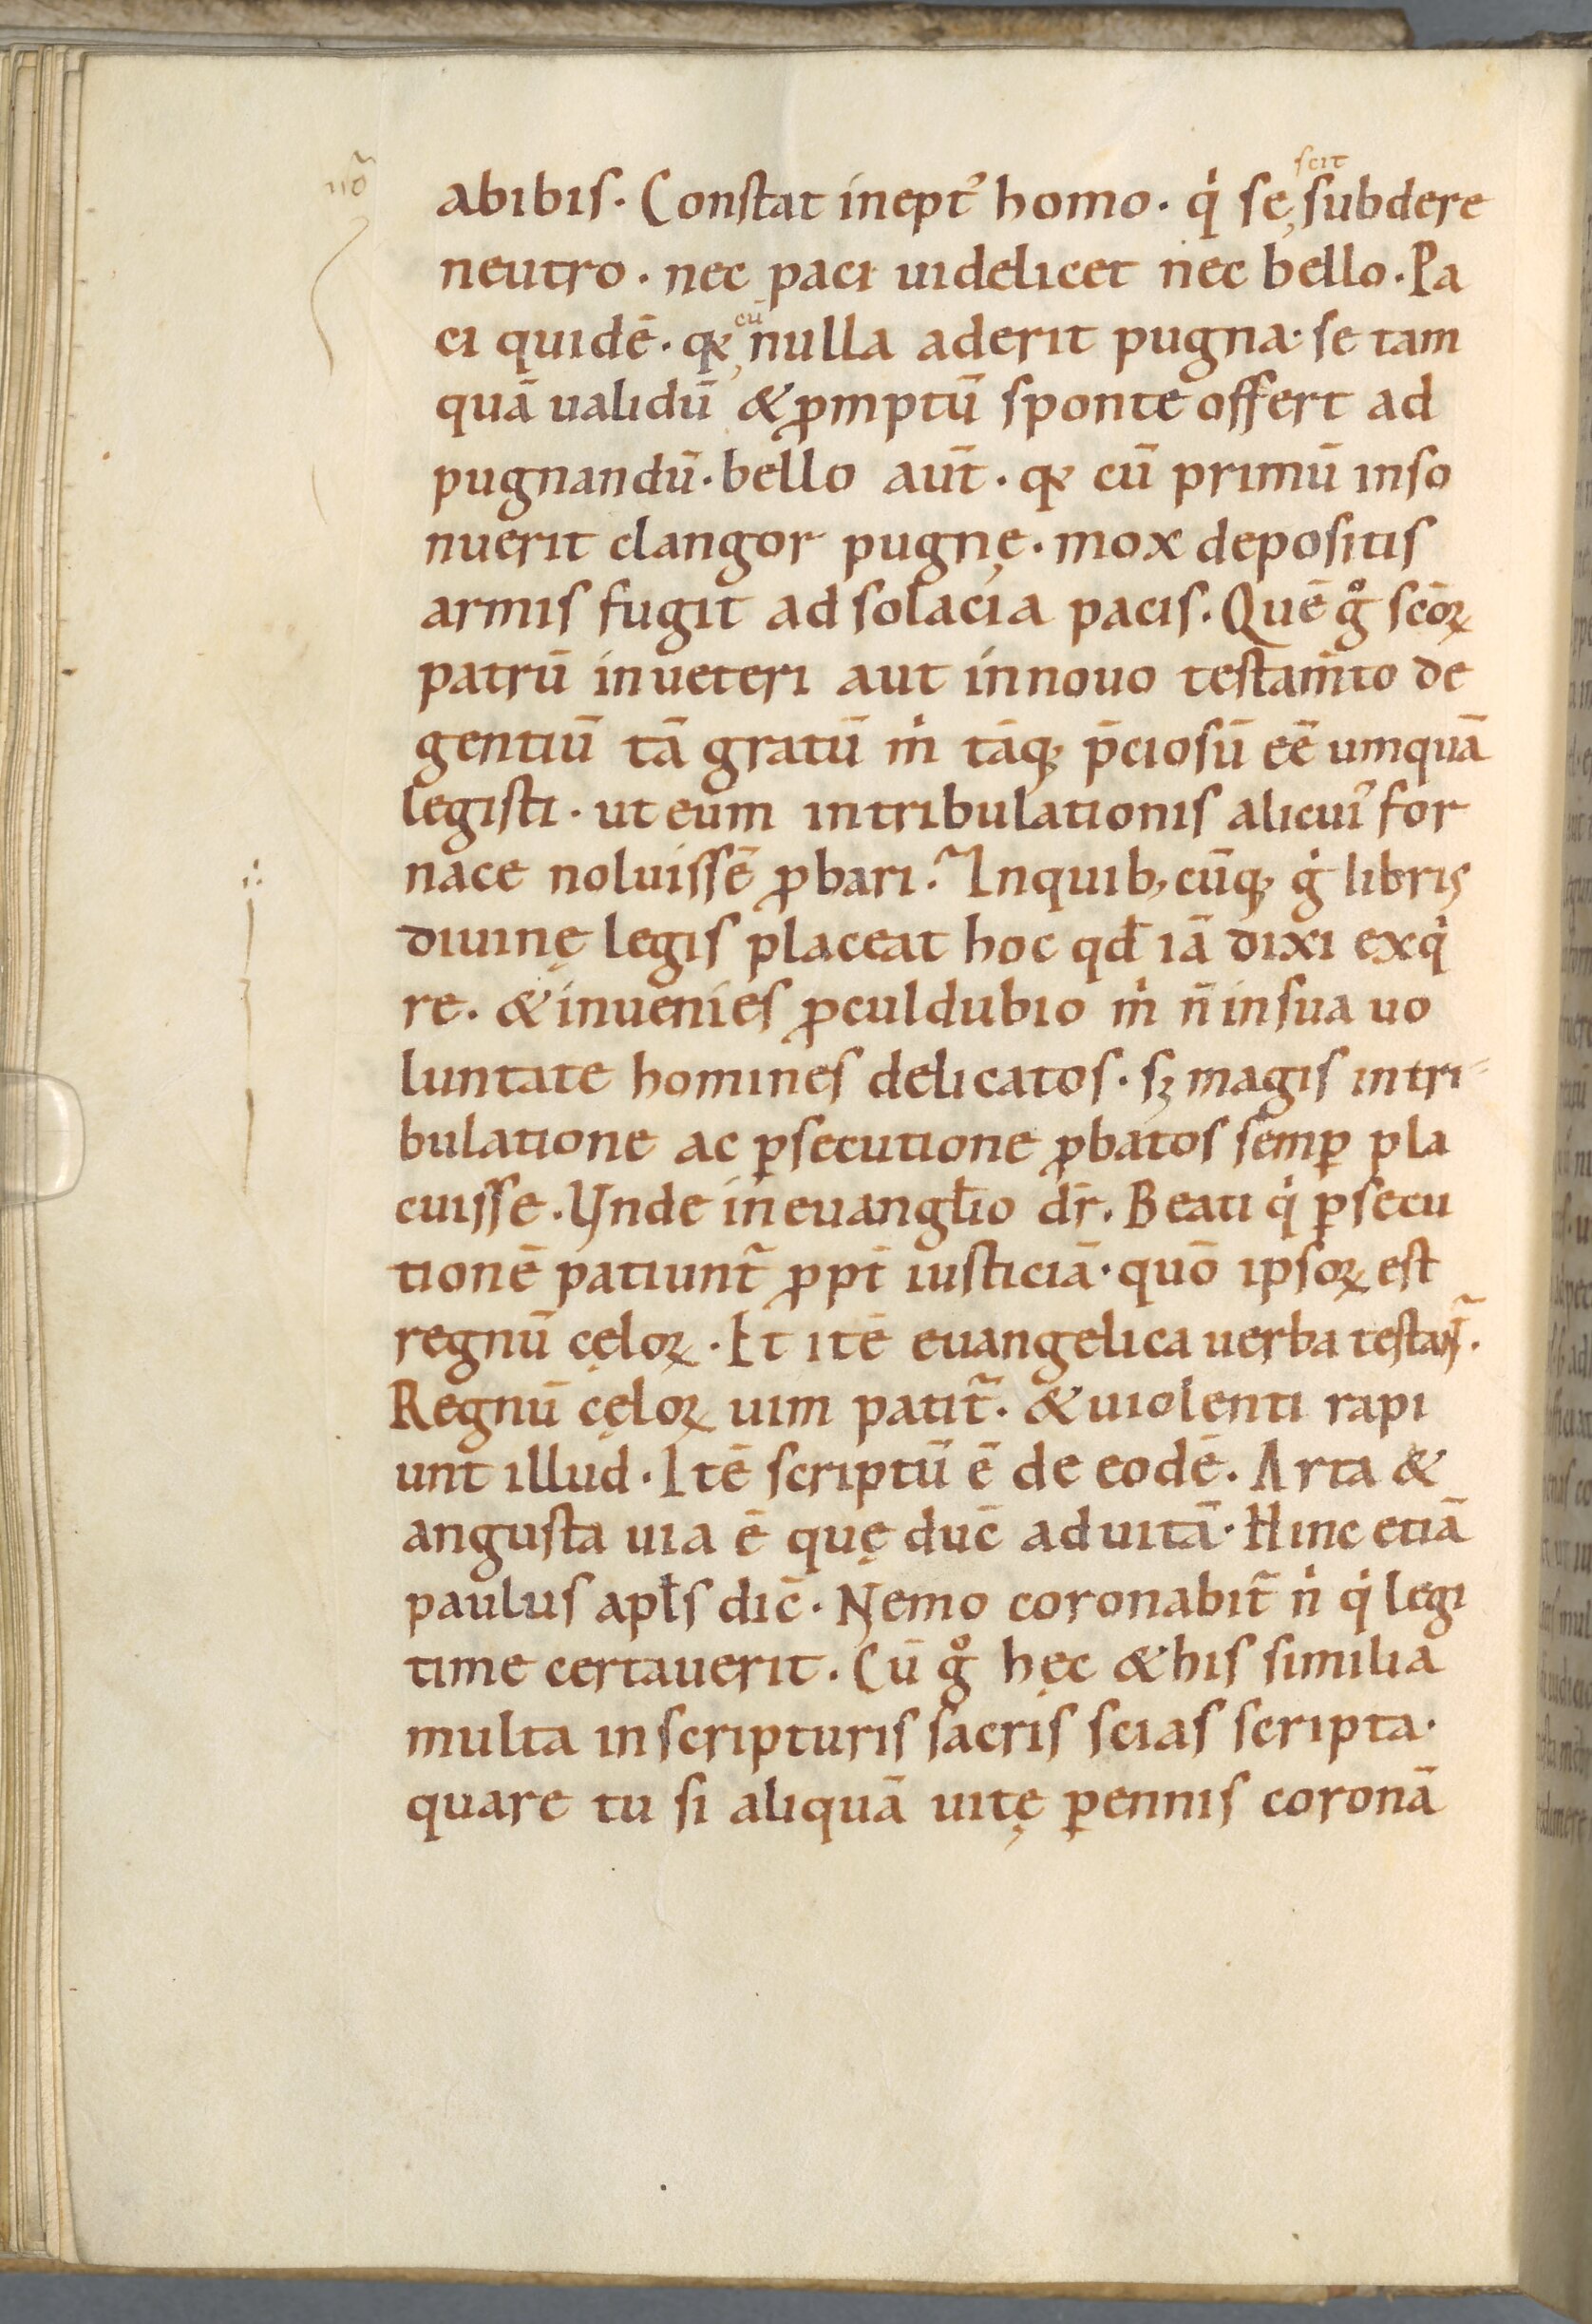 abibis. Constat inept᾽ homo. q̇ se, subdere
scit
neutro. nec paci uidelicet nec bello. Pa
ci quidē. qꝛ, nulla aderit pugna· se tam
cū
quā ualidū & ꝓmptū sponte offert ad
pugnandū. bello aūt. qꝛ cū primū inso
nuerit clangor pugnę. mox depositis
armis fugit ad solacia pacis. Quē gͦ scōꝝ
patrū in ueteri aut in nouo testam̅to de
gentiū tā gratū ṁ tāq; p̄ciosū eē umquā
legisti. ut eum in tribulationis alicui᾽ for
nace noluissē ꝓbari. Inquib; cūq; ġ libris
diuinę legis placeat hoc qđ iā dixi exq̇
re. & inuenies ꝓculdubio ṁ n̄ in sua uo
luntate homines delicatos. sꝫ magis in tri-
bulatione ac ꝑsecutione ꝓbatos semꝑ pla
cuisse. Unde in euangłio dr̄. Beati q̇ ꝑsecu
tionē patiunt᷑ ꝓpt̄ iusticiā. quō ipsoꝝ est
regnū cęloꝝ. Et itē euangelica uerba testant᷑.
Regnū cęloꝝ uim patit᷑. & uiolenti rapi
unt illud. Itē scriptū ē de eodē. Arta &
angusta uia ē quę duc̄ ad uitā. Hinc etiā
paulus apłs dic̄. Nemo coronabit᷑ ṅ q̇ legi
time certauerit. Cū gͦ hęc & his similia
multa in scripturis sacris scias scripta.
quare tu si aliquā uitę ꝑennis coronā